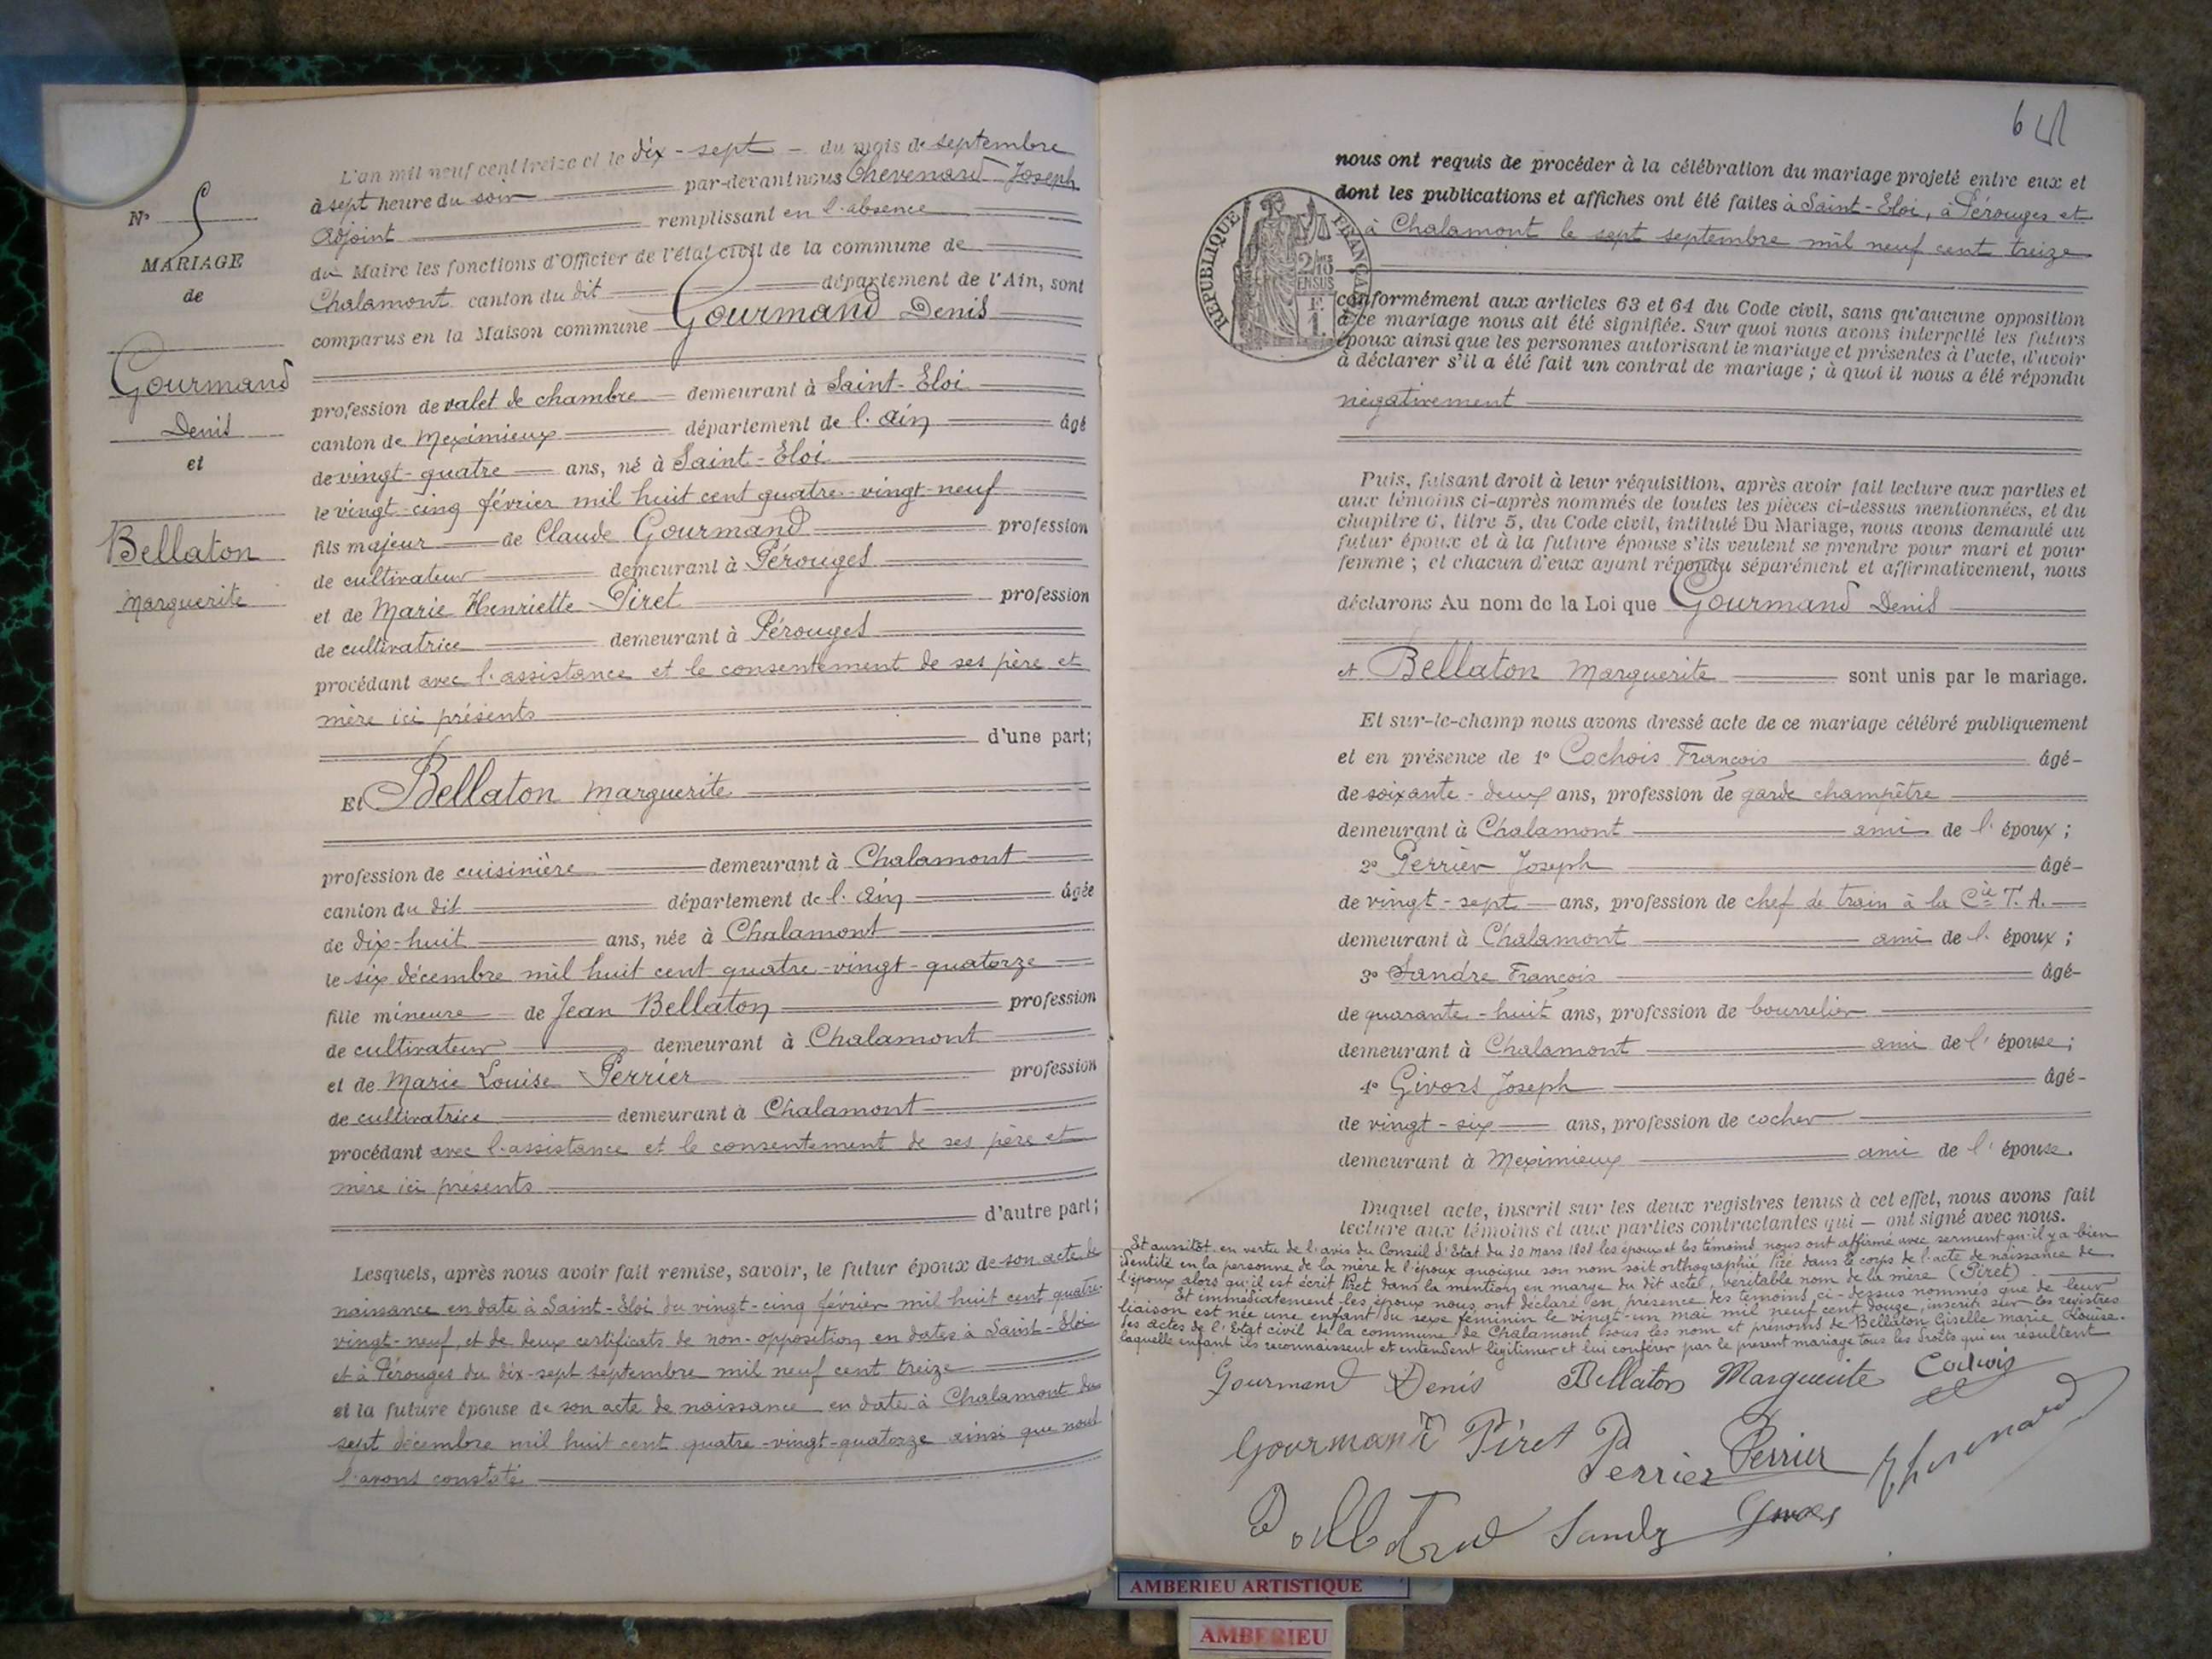 N° 5
MARIAGE
de
Gourmand
Denis
et
Bellaton
Marguerite
L'an mil neuf cent treize et le dix-sept - du mois de septembre
à sept heure du soir par-devant nous Chevenard Joseph
Adjoint remplissant en l'absence
du Maire les fonctions d'Officier de l'état civil de la commune de
Chalamont canton du dit département de l'Ain, sont
comparus en la Maison commune Gourmand Denis
profession de valet de chambre demeurant à Saint-Eloi
canton de Meximieux département de l'Ain âgé
de vingt-quatre ans, né à Saint-Eloi
le vingt-cinq février mil huit cent quatre-vingt-neuf
fils majeur de Claude Gourmand profession
de cultivateur demeurant à Pérouges
et de Marie Henriette Piret profession
de cultivatrice demeurant à Pérouges
procédant avec l'assistance et le consentement de ses père et
mère ici présents
d'une part;
Et Bellaton Marguerite
profession de cuisinière demeurant à Chalamont
canton du dit département de l'Ain âgée
de dix-huit ans, née à Chalamont
le six décembre mil huit cent quatre-vingt-quatorze
fille mineure de Jean Bellaton profession
de cultivateur demeurant à Chalamont
et de Marie Louise Perrier profession
de cultivatrice demeurant à Chalamont
procédant avec l'assistance et le consentement de ses père et
mère ici présents
d'autre part;
Lesquels, après nous avoir fait remise, savoir, le futur époux de son acte de
naissance en date à Saint-Eloi du vingt-cinq février mil huit cent quatre-
vingt-neuf, et de deux certificats de non-opposition en dates à Saint-Eloi
et à Pérouges du dix-sept septembre mil neuf cent treize
et la future épouse de son acte de naissance en date à Chalamont du
sept décembre mil huit cent quatre-vingt-quatorze ainsi que nous
l'avons constaté
6
RÉPUBLIQUE FRANÇAISE
2/10
EN SUS
F.
1.
nous ont requis de procéder à la célébration du mariage projeté entre eux et
dont les publications et affiches ont été faites à Saint-Eloi, à Pérouges et
à Chalamont le sept septembre mil neuf cent treize
conformément aux articles 63 et 64 du Code civil, sans qu'aucune opposition
à ce mariage nous ait été signifiée. Sur quoi nous avons interpellé les futurs
époux ainsi que les personnes autorisant le mariage et présentes à l'acte, d'avoir
à déclarer s'il a été fait un contrat de mariage; à quoi il nous a été répondu
négativement
Puis, faisant droit à leur réquisition, après avoir fait lecture aux parties et
aux témoins ci-après nommés de toutes les pièces ci-dessus mentionnées, et du
chapitre 6, titre 5, du Code civil, intitulé Du Mariage, nous avons demandé au
futur époux et à la future épouse s'ils veulent se prendre pour mari et pour
femme; et chacun d'eux ayant répondu séparément et affirmativement, nous
déclarons Au nom de la Loi que Gourmand Denis
et Bellaton Marguerite sont unis par le mariage.
Et sur-le-champ nous avons dressé acte de ce mariage célébré publiquement
et en présence de 1° Cochois François âgé-
de soixante-deux ans, profession de garde champêtre
demeurant à Chalamont ami de l'époux;
2° Perrier Joseph âgé-
de vingt-sept ans, profession de chef de train à la Cie T. A.
demeurant à Chalamont ami de l'époux;
3° Sandre François âgé-
de quarante-huit ans, profession de bourrelier
demeurant à Chalamont ami de l'épouse;
4° Givors Joseph âgé-
de vingt-six ans, profession de cocher
demeurant à Meximieux ami de l'épouse.
Duquel acte, inscrit sur les deux registres tenus à cet effet, nous avons fait
lecture aux témoins et aux parties contractantes qui — ont signé avec nous.
Et aussitôt en vertu de l'avis du Conseil d'Etat du 30 mars 1808 les époux et les témoins nous ont affirmé avec serment qu'il y a bien
identité en la personne de la mère de l'époux quoique son nom soit orthographié Pizé dans le corps de l'acte de naissance de
l'époux alors qu'il est écrit Piret dans la mention en marge du dit acte, véritable nom de la mère (Piret)
Et immédiatement les époux nous ont déclaré en présence des témoins ci-dessus nommés que de leur
liaison est née une enfant du sexe féminin le vingt-un mai mil neuf cent douze, inscrite sur les registres
des actes de l'Etat civil de la commune de Chalamont sous les nom et prénoms de Bellaton Giselle Marie Louise.
laquelle enfant ils reconnaissent et entendent légitimer et lui conférer par le présent mariage tous les droits qui en résultent
Gourmand Denis Bellaton Marguerite Cochois
Gourmand Piret Perrier Perrier Chevenard
Bellaton Sandre Givors
AMBERIEU ARTISTIQUE
AMBERIEU